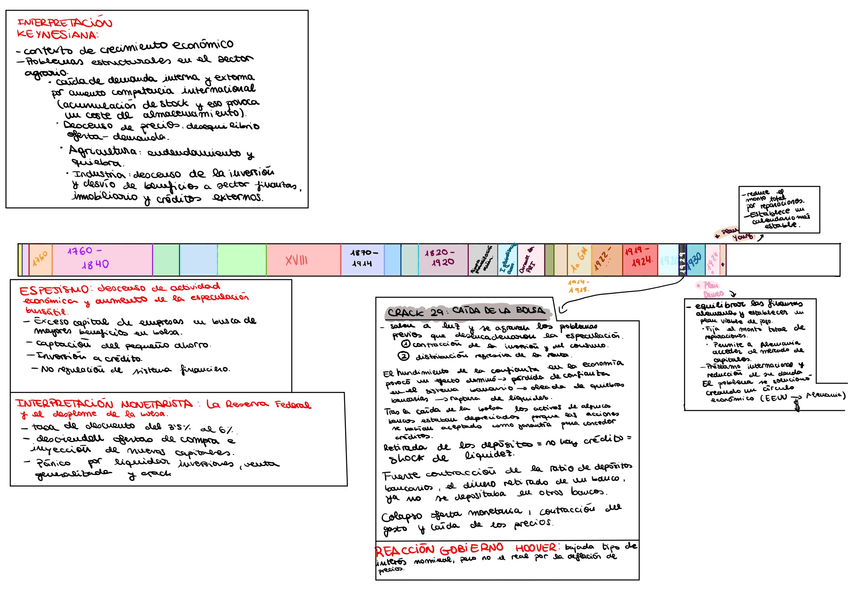 INTERPRETACIÓN
KEYNESIANA:
- contexto de crecimiento económico
- Problemas estructurales en el sector
agrario.
· caída de demanda interna y externa
por aumento competencia internacional
(acumulación de stock y eso provoca
un coste de almacenamiento).
· Descenso de precios. desequilibrio
oferta - demanda.
· Agricultura: endeudamiento y
quiebra.
· Industria: descenso de la inversión
y desvío de beneficios a sector finanzas,
inmobiliario y créditos externos.
- reduce el
monto total
por reparaciones.
- Establece un
calendario más
estable.
+ Plan
Young
1760
1760 -
1840
XVIII
1870 -
1914
1820 -
1920
1a GM
1922 -
1919 -
1924
1930
1914 -
1918.
+ Plan
Dawes
ESPEJISMO: descenso de actividad
económica y aumento de la especulación
bursátil.
- Exceso capital de empresas en busca de
mayores beneficios en bolsa.
- captación del pequeño ahorro.
- Inversión a crédito.
- No regulación de sistema financiero.
INTERPRETACIÓN MONETARISTA: La Reserva Federal
y el desplome de la bolsa.
- tasa de descuento del 3'5% al 6%.
- descienden ofertas de compra e
inyección de nuevos capitales.
- Pánico por liquidar inversiones, venta
generalizada y crack
CRACK 29: CAÍDA DE LA BOLSA
- salen a luz y se agravan los problemas
previos que desencadenaron la especulación.
① contracción de la inversión y del consumo.
② distribución regresiva de la renta
El hundimiento de la confianza en la economía
provocó un efecto dominó → pérdida de confianza
en el sistema bancario → oleada de quiebras
bancarias → ruptura de liquidez.
Tras la caída de la bolsa los activos de algunos
bancos estaban depreciados porque las acciones
se habían aceptado como garantía para conceder
créditos.
Retirada de los depósitos = no hay crédito =
shock de liquidez.
Fuerte contracción de la ratio de depósitos
bancarios, el dinero retirado de un banco,
ya no se depositaba en otros bancos.
Colapso oferta monetaria, contracción del
gasto y caída de los precios.
REACCIÓN GOBIERNO HOOVER: bajada tipo de
interés nominal, pero no el real por la deflación de
precios.
- equilibrar las finanzas
alemanas y establecer un
plan viable de pago.
· Fija el monto total de
reparaciones.
· Permite a Alemania
acceder al mercado de
capitales.
- Préstamo internacional y
reducción de su deuda
El problema se solucionó
creando un círculo
económico (EEUU → Alemania)